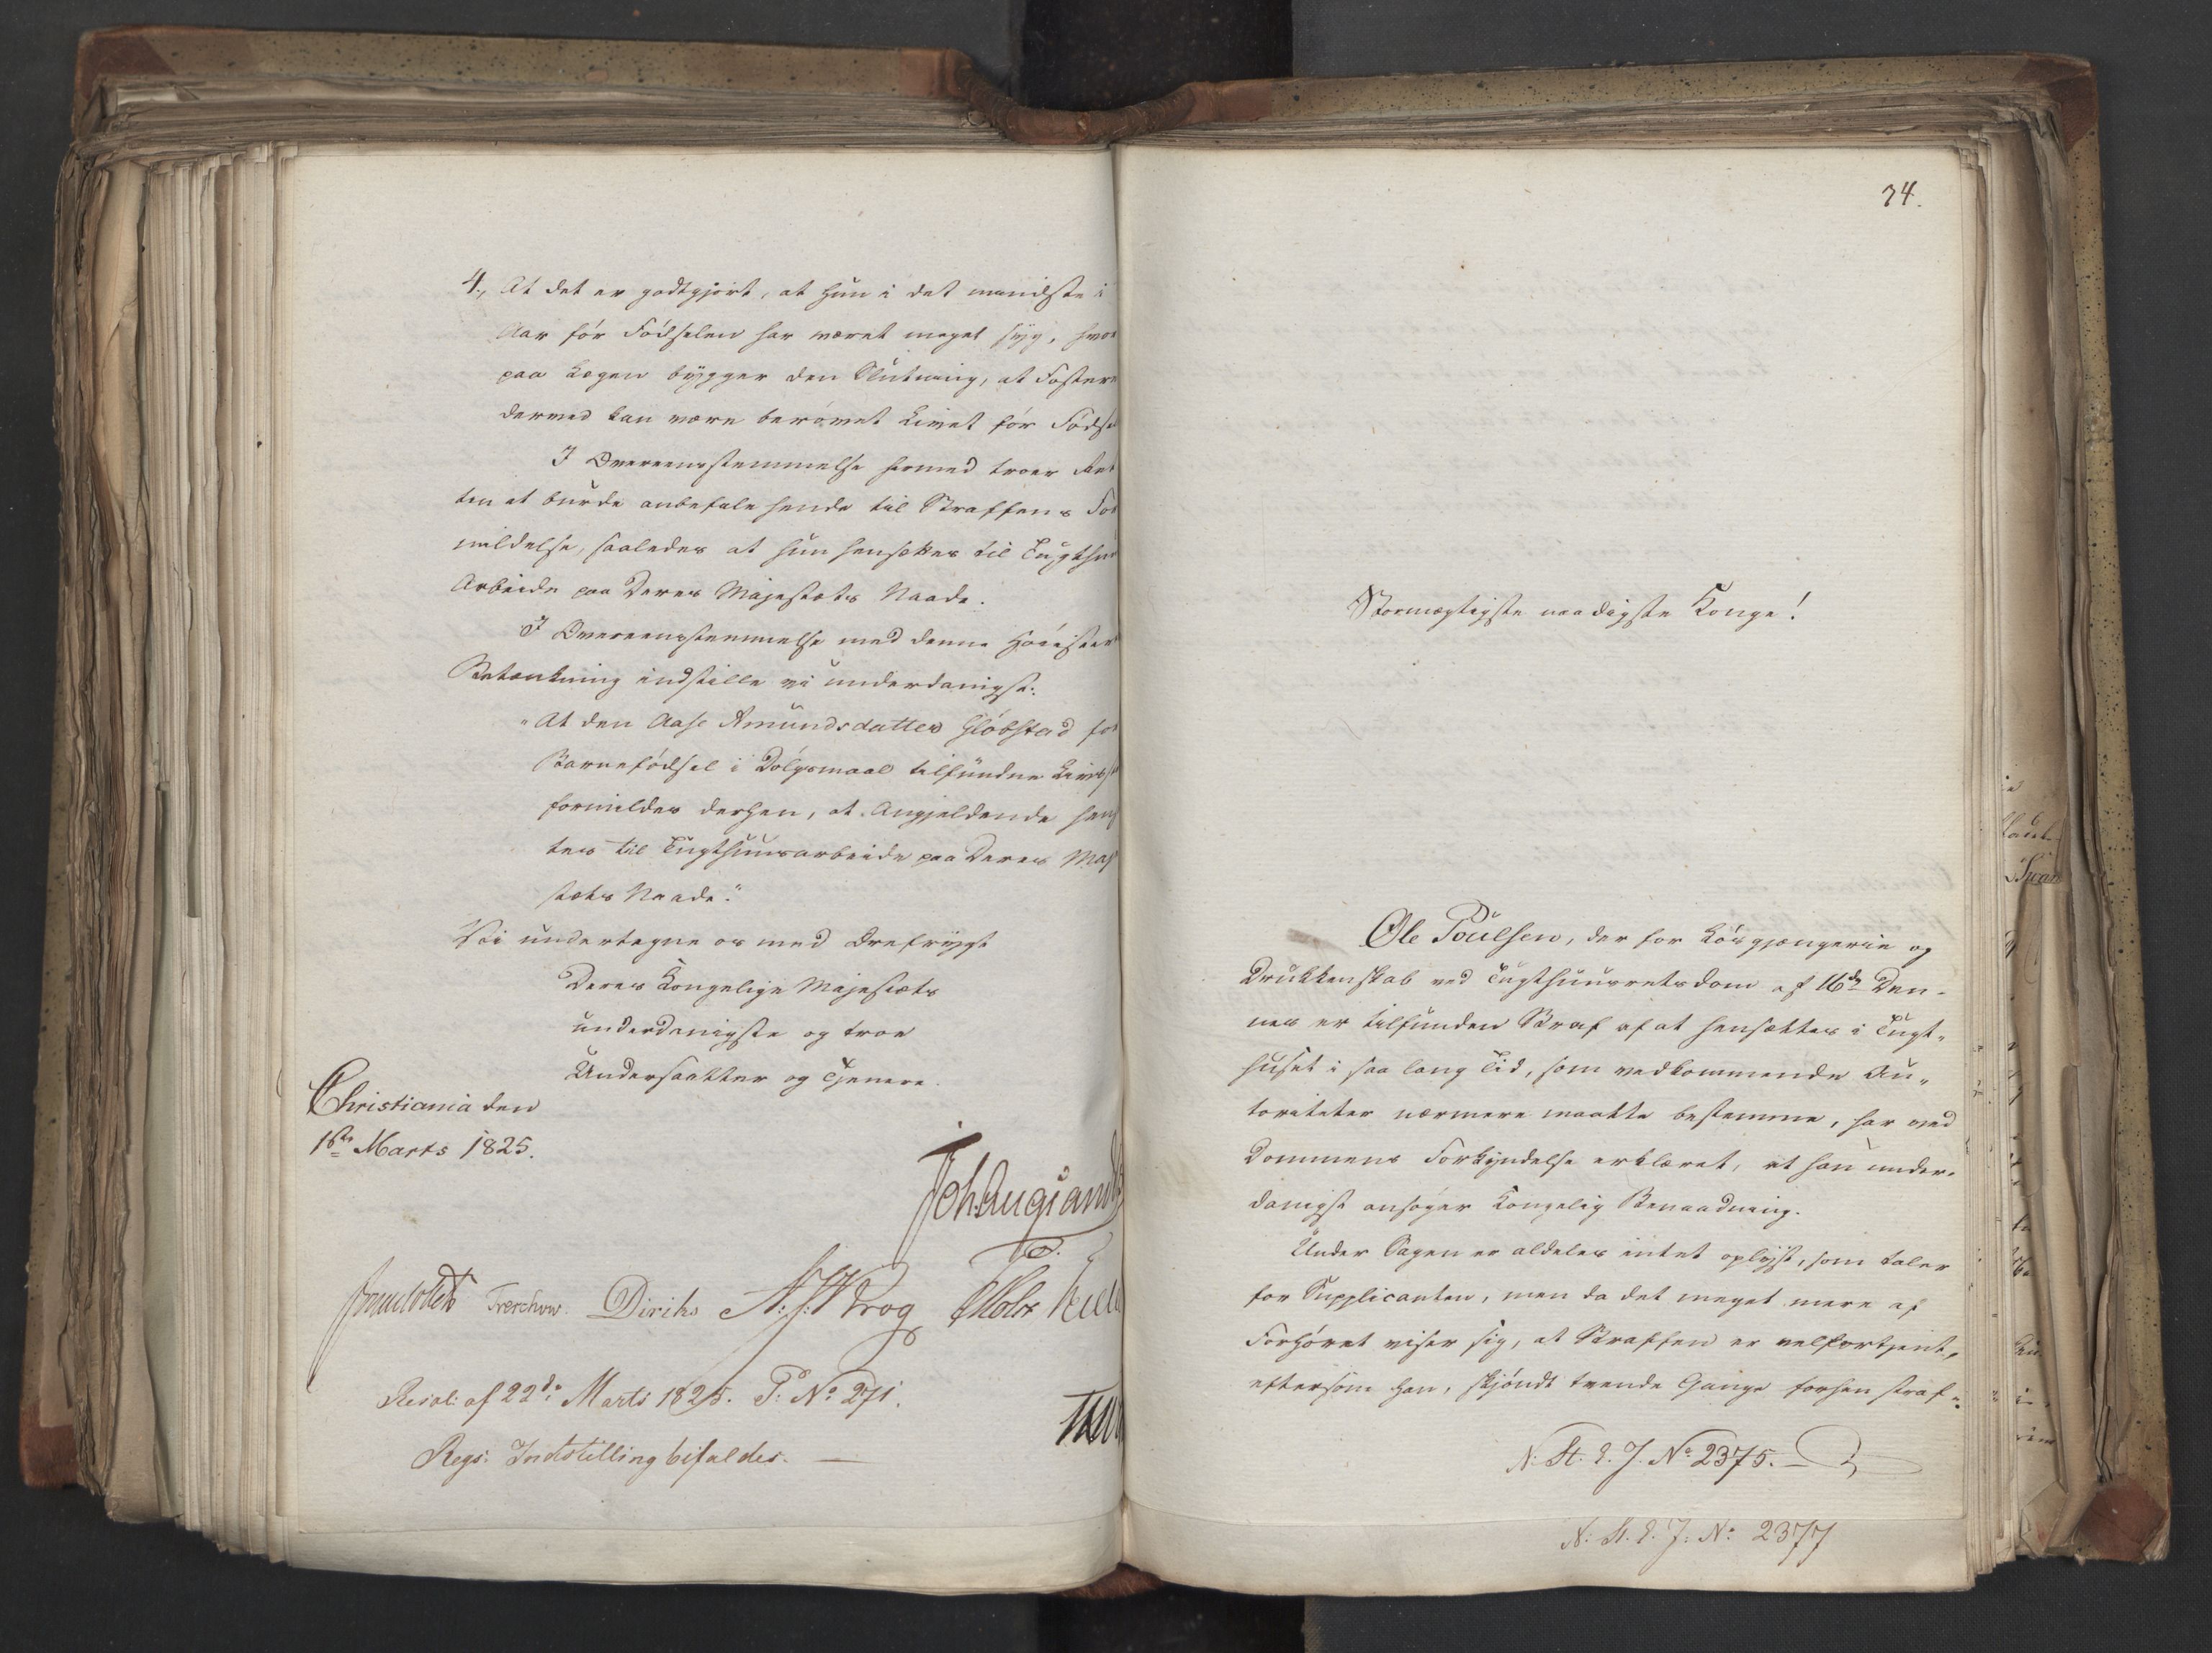 4., At det er godtgjort, at hun i det mindste i
Aar før Fødselen har været meget syg, hvor
paa Lægen bygger den Slutning, at Fostere
derved kan være berøvet Livet før Fødse
I Overeensstemmelse hermed troer Ret
ten at burde anbefale hende til Straffens For
mildelse, saaledes at hun hensættes til Tugthuus
Arbeide paa Deres Majestæts Naade.
I Overeensstemmelse med denne Høiester
Betænkning indstille vi underdanigst:
"At den Aase Amundsdatter Gløbstad for
Barnefødsel i Dølgsmaal tilfundne Livsst
formildes derhen, at Angjeldende hens
tes til Tugthuusarbeide paa Deres Maj
stæts Naade."
Vi undertegne os med Ærefrygt
Deres Kongelige Majestæts
underdanigste og troe
Undersaatter og Tjenere.
Christiania den
1ste Marts 1825.
Joh. Aug. Sand
Treschow. Diriks A: J: W Krog Holst
Resol: af 22de Marts 1825. P: No 271.
Regs: Indstilling bifaldes. —
34.
Stormægtigste naadigste Konge!
Ole Poulsen, der for Løsgjængerie og
Drukkenskab ved Tugthuusretsdom af 16de Den-
nes er tilfunden Straf af at hensættes i Tugt-
huset i saa lang Tid, som vedkommende Au-
toriteter nærmere maatte bestemme, har ved
Dommens Forkyndelse erklæret, at han under-
danigst ansøger Kongelig Benaadning.
Under Sagen er aldeles intet oplyst, som taler
for Supplicanten, men da det meget mere af
Forhøret viser sig, at Straffen er velfortjent,
eftersom han, skjøndt trende Gange forhen straf-
N. St. E. J. No 2375. —
N: St. E. J: No 2377